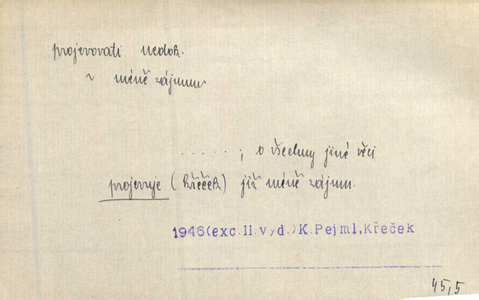 projevovati nedok.
~ méně zájmu
. . . . . ; o všechny jiné věci
projevuje (křeček) již méně zájmu.
1946(exc.II.vyd.)K.Pejml,Křeček
45,5